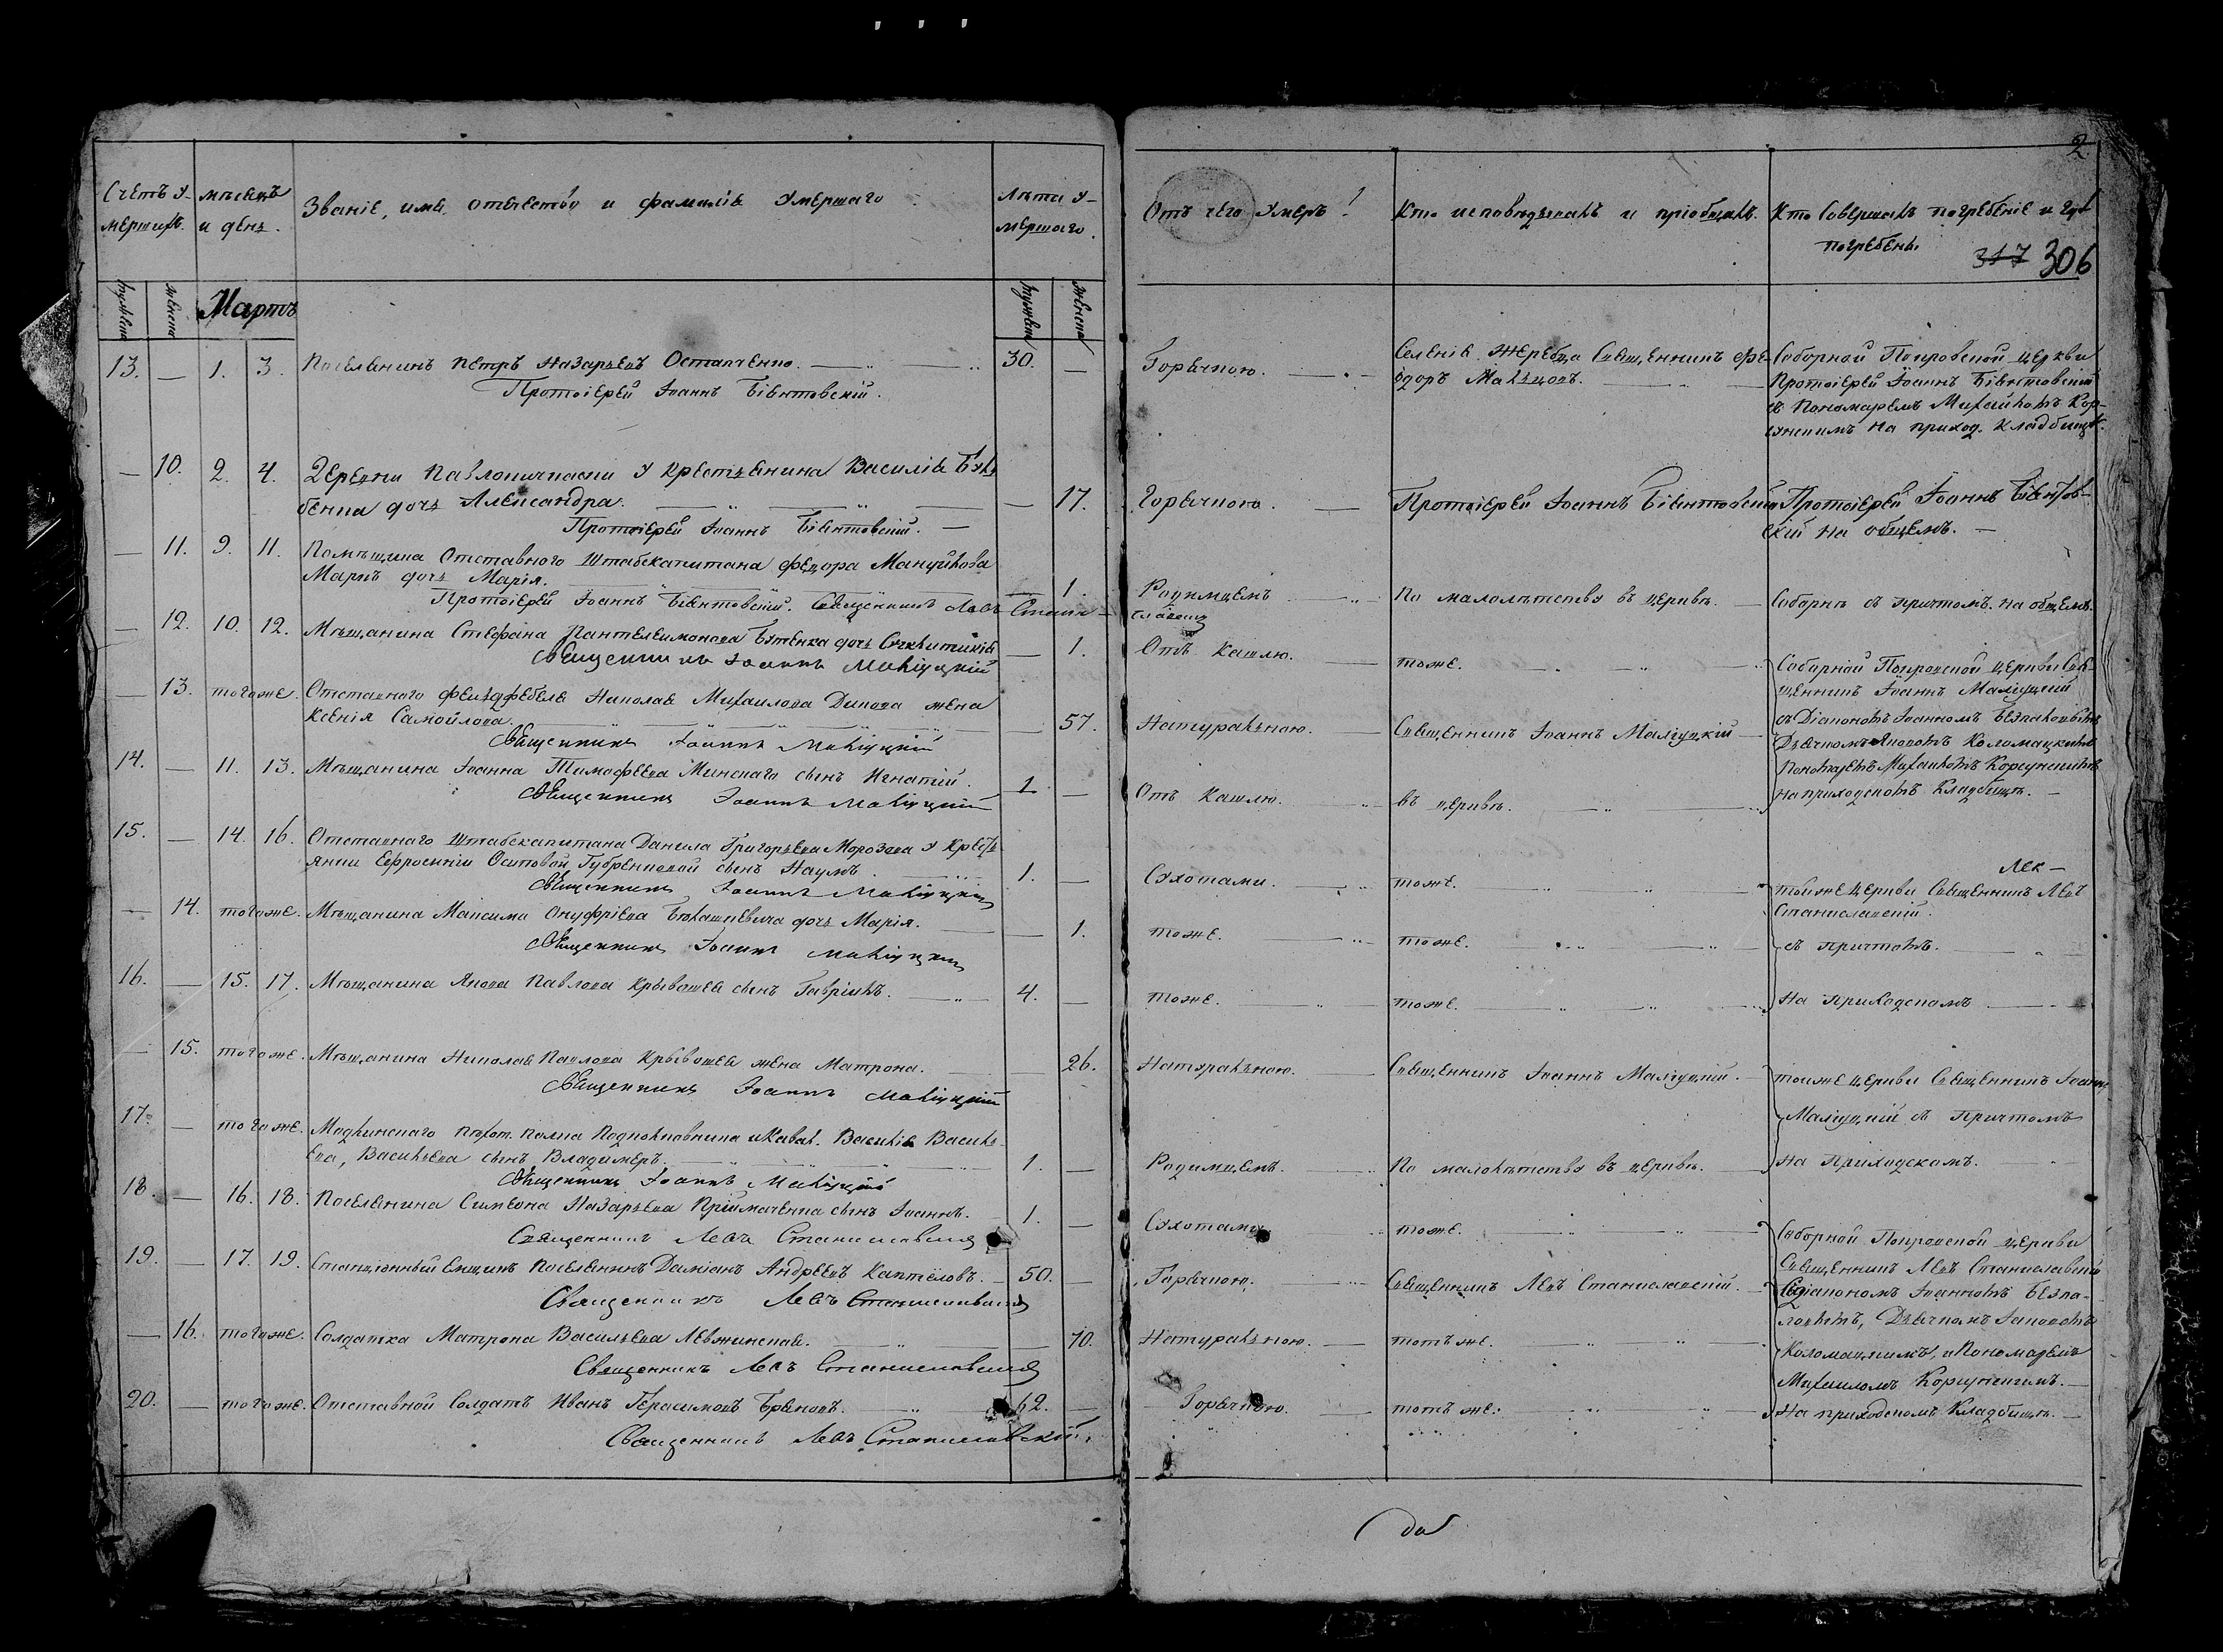 2
Счетъ у-
мершихъ.
мѣсецъ
и день.
Званіе, имя, отечество и фамилія умершаго
Лѣта у-
мершаго.
мужеска
женска
Мартъ
мужеска
женска
13. — 1. 3. Поселянинъ Петръ Назарьевъ Остапченко. 30. —
Протоіерей Іоаннъ
— 10. 2. 4. Деревни у крестьянина Василія
дочь Александра. — 17.
Протоіерей Іоаннъ
— 11. 9. 11. Помѣщика Отставного Штабскапитана Федора Мануйлова
дочь Марія. — 1.
Протоіерей Іоаннъ Священникъ Левъ Стани-
славскій
— 12. 10. 12. Мѣщанина Стефана Пантелеимонова Бутенка дочь — 1.
Священникъ Іоаннъ Малѣуцкій
— 13. тогоже. Отставного Фелдфебеля Николая Михаилова Дикова жена
Ксенія Самойлова. 57.
Священникъ Іоаннъ Малѣуцкій
14. — 11. 13. Мѣщанина Іоанна Тимофеева Минскаго сынъ Игнатій. 1 —
Священникъ Іоаннъ Малѣуцкій
15. — 14. 16. Отставного Штабскапитана Данила Григорьева Морозова у Кресть
янки Ефросиніи Осиповой сынъ Наумъ. 1. —
Священникъ Іоаннъ Малѣуцкій
— 14. тогоже. Мѣщанина Максима Онуфріева дочь Марія. — 1.
Священникъ Іоаннъ Малѣуцкій
16. — 15. 17. Мѣщанина Якова Павлова Крывошея сынъ Гавріилъ. 4. —
— 15. тогоже. Мѣщанина Николая Павлова Крывошея жена Матрона. — 26.
Священникъ Іоаннъ Малѣуцкій
17. — тогоже. Модлинскаго пѣхот. полка Подполковника и Кавал. Василія Василь-
ева, Васильева сынъ Владимеръ. 1. —
Священникъ Іоаннъ Малѣуцкій
18. — 16. 18. Поселянина Симеона Назарьева Пріймаченка сынъ Іоаннъ. 1. —
Священникъ Левъ Станиславскій
19. — 17. 19. Станціонный Емщикъ Поселянинъ Даміанъ Андреевъ Каптёловъ. 50. —
Священникъ Левъ Станиславскій
— 16. тогоже. Солдатка Матрона Васильева Левжинская. 70.
Священникъ Левъ Станиславскій
20. — тогоже. Отставной Солдатъ Иванъ Герасимовъ 62. —
Священникъ Левъ Станиславскій.
Отъ чего умеръ!
Кто исповѣдывалъ и пріобщалъ.
Кто Совершалъ погребеніе и гдѣ
погребены
317 306
Горячкою.
Селенія Жеребца Священникъ Фе-
одоръ Мальцовъ.
Соборной Покровской церкви
Протоіерей Іоаннъ
съ Пономаремъ Михайломъ Кор-
сунскимъ на приход. кладбищѣ.
Горячкою.
Протоіерей Іоаннъ
Протоіерей Іоаннъ
скій на общемъ.
Родимцемъ
По малолѣтству въ церквѣ.
Соборнѣ съ причтомъ. на общемъ.
Отъ кашлю.
тоже.
Соборной Покровской церкви Свя-
щенникъ Іоаннъ Маліуцкій
Натуральною.
Священникъ Іоаннъ Маліуцкій
съ Діакономъ Іоанномъ Безпаловымъ
Дьячкомъ Яковомъ Коломацкимъ
Пономаремъ Михаиломъ Корсунскимъ
на приходскомъ Кладбищѣ.
Отъ Кашлю.
въ церквѣ.
Сухотами.
тоже.
Лек-
тойже церкви Священникъ Левъ
Станиславскій.
тоже.
тоже.
съ причтомъ.
тоже.
тоже.
На приходскомъ
Натуральною.
Священникъ Іоаннъ Маліуцкій.
тоиже церкви Священникъ Іоаннъ
Маліуцкій съ Причтомъ
Родимцемъ.
По малолѣтству въ церквѣ.
На Приходскомъ.
Сухотами
тоже.
Соборной Покровской церкви
Священникъ Левъ Станиславскій
Горячкою.
Священникъ Левъ Станиславскій.
Съ Діакономъ Іоанномъ Безпа-
ловымъ, Дьячкомъ Іаковомъ
Натуральною.
тотъ же.
Коломацкимъ, и Пономаремъ
Михаиломъ Корсунскимъ.
Горячкою.
тотъ же.
На приходскомъ Кладбищѣ.